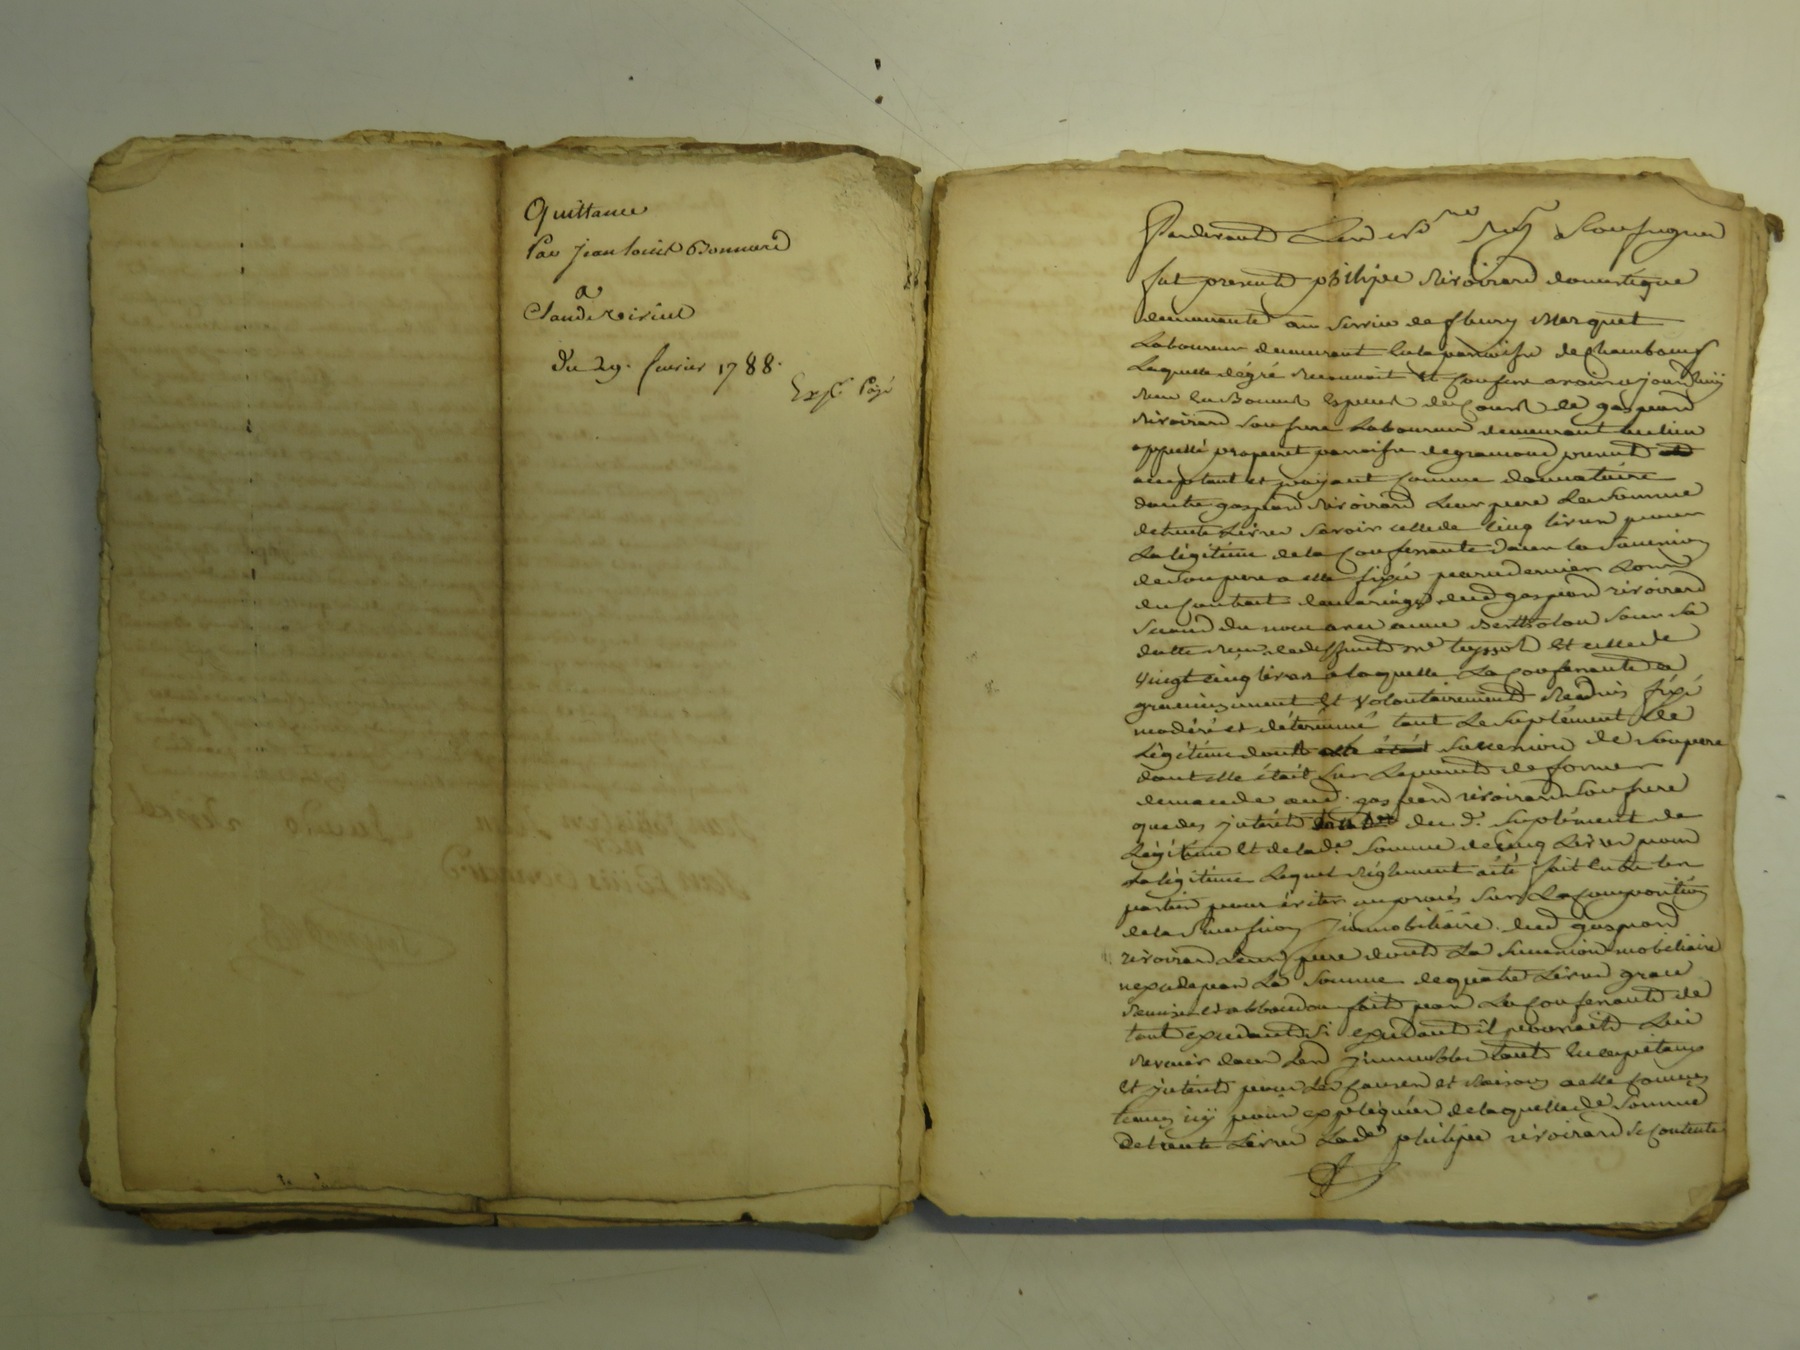 Quittance
Par jean louis Bonnard
a
Claude
du 29. fevrier 1788.
Exp. Payé
Pardevant Les Soussignes
fut presente philipe rivoirard domestique
demeurante au service de fleury Merquet
Laboureur demeurant en la parroisse de chambeuf
Laquelle de gré reconnoit et confesse avoir ce jourdhuy
reçu en bonnes especes de cours de gaspard
rivoirard son frere Laboureur demeurant au lieu
appellé parroisse de gramond present
acceptant et payant comme donnataire
dautre gaspard rivoirard leur pere La somme
de trente Livres savoir celle de cinq livres pour
La légitime de la confessante dans la succession
de son pere a elle fixée par ce dernier lors
du contrat de mariage dud gaspard rivoirard
second du nom avec anne Bertholon sous sa
datte reçu deffunt me teyssot et celle de
vingt cinq livres a laquelle La confessante a
gracieusement et volontairement reduit fixé
modéré et déterminé tant Le suplément de
Légitime dans la succession de son pere
dont elle était sur le point de former
demande aud. gaspard rivoirard son frere
que des jnterêts dud. suplément de
Légitime et de lade. somme de cinq Livres pour
La légitime Lequel réglement a été fait entre les
parties pour éviter un procès sur La composition
de la succession jmmobiliaire dud gaspard
rivoirard Leur pere dont La succession mobiliaire
n'excede pas La somme de quatre Livres grace
remise et abbandon fait par La confessante de
tout excedant si excedant il pourroit Lui
revenir dans Les jmmeubles tant en capitaux
et jnterêts pour des causes et raisons a elle connues
sans icy pour expliquées de laquelle de. somme
De trente Livres Lade philipe rivoirard se contente